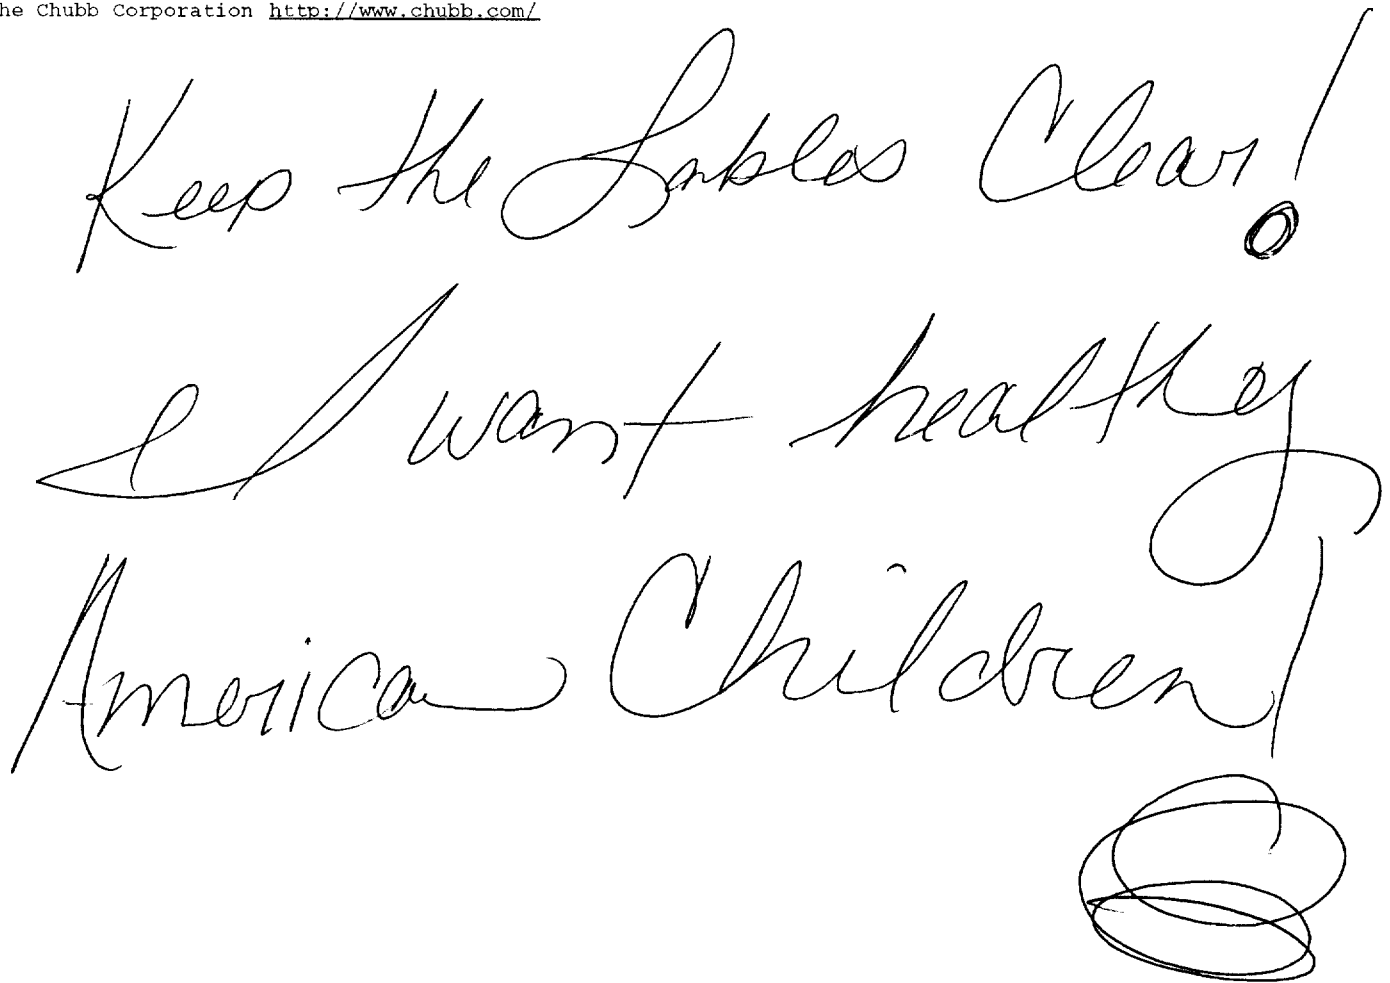 he Chubb Corporation http://www.chubb.com/
Keep the Lables Clear!
I want healthy
American Children!